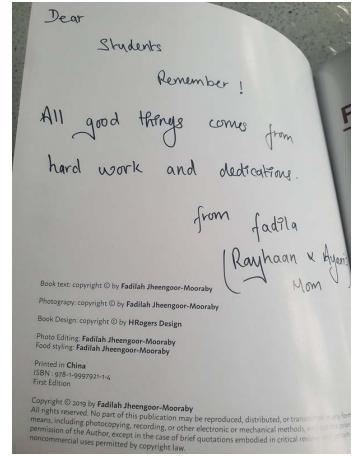 Dear
Students
Remember !
All good things comes from
hard work and dedications.
from fadila
(Rayhaan &
Mom
Book text: copyright © by Fadilah Jheengoor-Mooraby
Photograpy: copyright © by Fadilah Jheengoor-Mooraby
Book Design: copyright © by HRogers Design
Photo Editing: Fadilah Jheengoor-Mooraby
Food styling: Fadilah Jheengoor-Mooraby
Printed in China
ISBN : 978-1-9997921-1-4
First Edition
Copyright © 2019 by Fadilah Jheengoor-Mooraby
All rights reserved. No part of this publication may be reproduced, distributed, or in any form
means, including photocopying, recording, or other electronic or mechanical methods, prior
permission of the Author, except in the case of brief quotations embodied in critical
noncommercial uses permitted by copyright law.